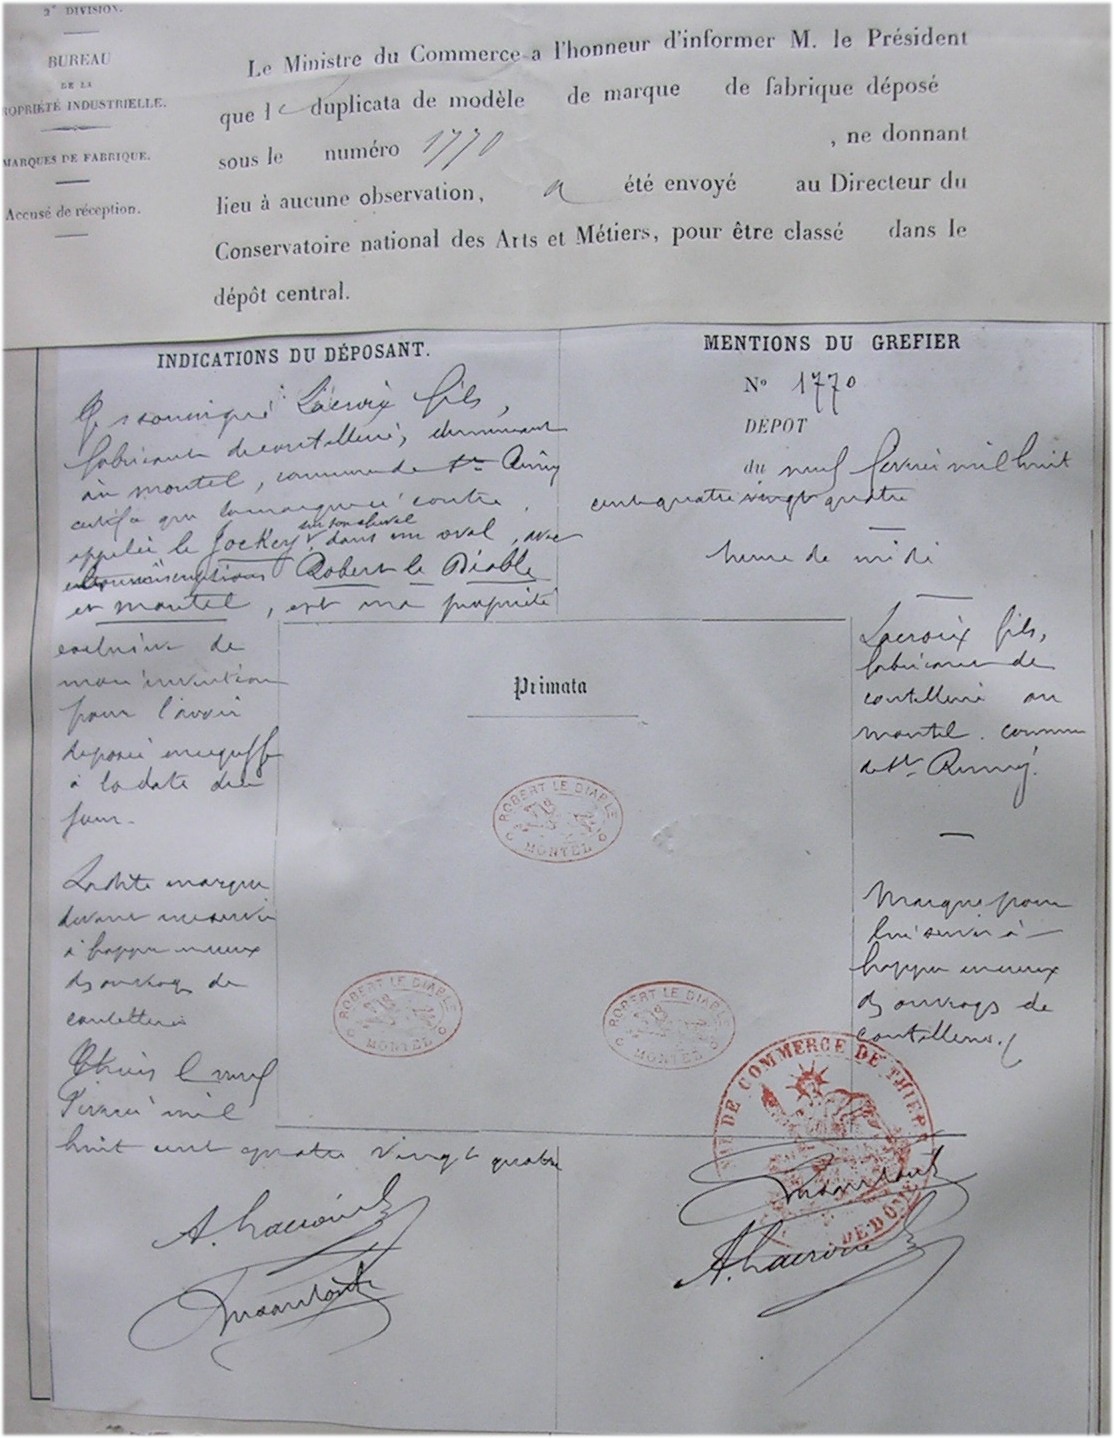 2e DIVISION.
BUREAU
DE LA
ROPRIÉTÉ INDUSTRIELLE.
MARQUES DE FABRIQUE.
Accusé de réception.
Le Ministre du Commerce a l'honneur d'informer M. le Président
que le duplicata de modèle de marque de fabrique déposé
sous le numéro 1770 , ne donnant
lieu à aucune observation, a été envoyé au Directeur du
Conservatoire national des Arts et Métiers, pour être classé dans le
dépôt central.
INDICATIONS DU DÉPOSANT.
Je soussigné Lacroix fils,
fabricant de coutellerie, demeurant
au montel, commune de St Rémy
certifie que la marque ci contre
appelée le Jockey sur son cheval dans un oval, avec
inscriptions Robert le Diable
et montel, est ma propriété
exclusive de
mon invention
pour l'avoir
déposée au greffe
à la date du
jour.
Ladite marque
devant me servir
à frapper mieux
des ouvrages de
coutellerie
Thiers le neuf
Février mil
huit cent quatre vingt quatre
A. Lacroix
MENTIONS DU GREFIER
No 1770
DÉPOT
du neuf février mil huit
cent quatre vingt quatre
heure de midi
Lacroix fils,
fabricant de
coutellerie au
montel. commune
de St Remy.
Marque pour
lui servir à
frapper
des ouvrages de
coutellerie.
Primata
ROBERT LE DIABLE
MONTEL
ROBERT LE DIABLE
MONTEL
ROBERT LE DIABLE
MONTEL
DE COMMERCE DE THIERS
DE DÔME
A. Lacroix